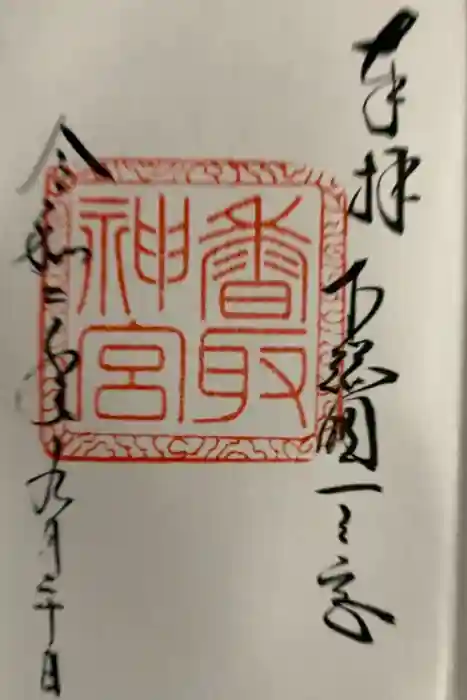 奉拝 下総國一之宮
香取
神宮
令和二年九月二十日